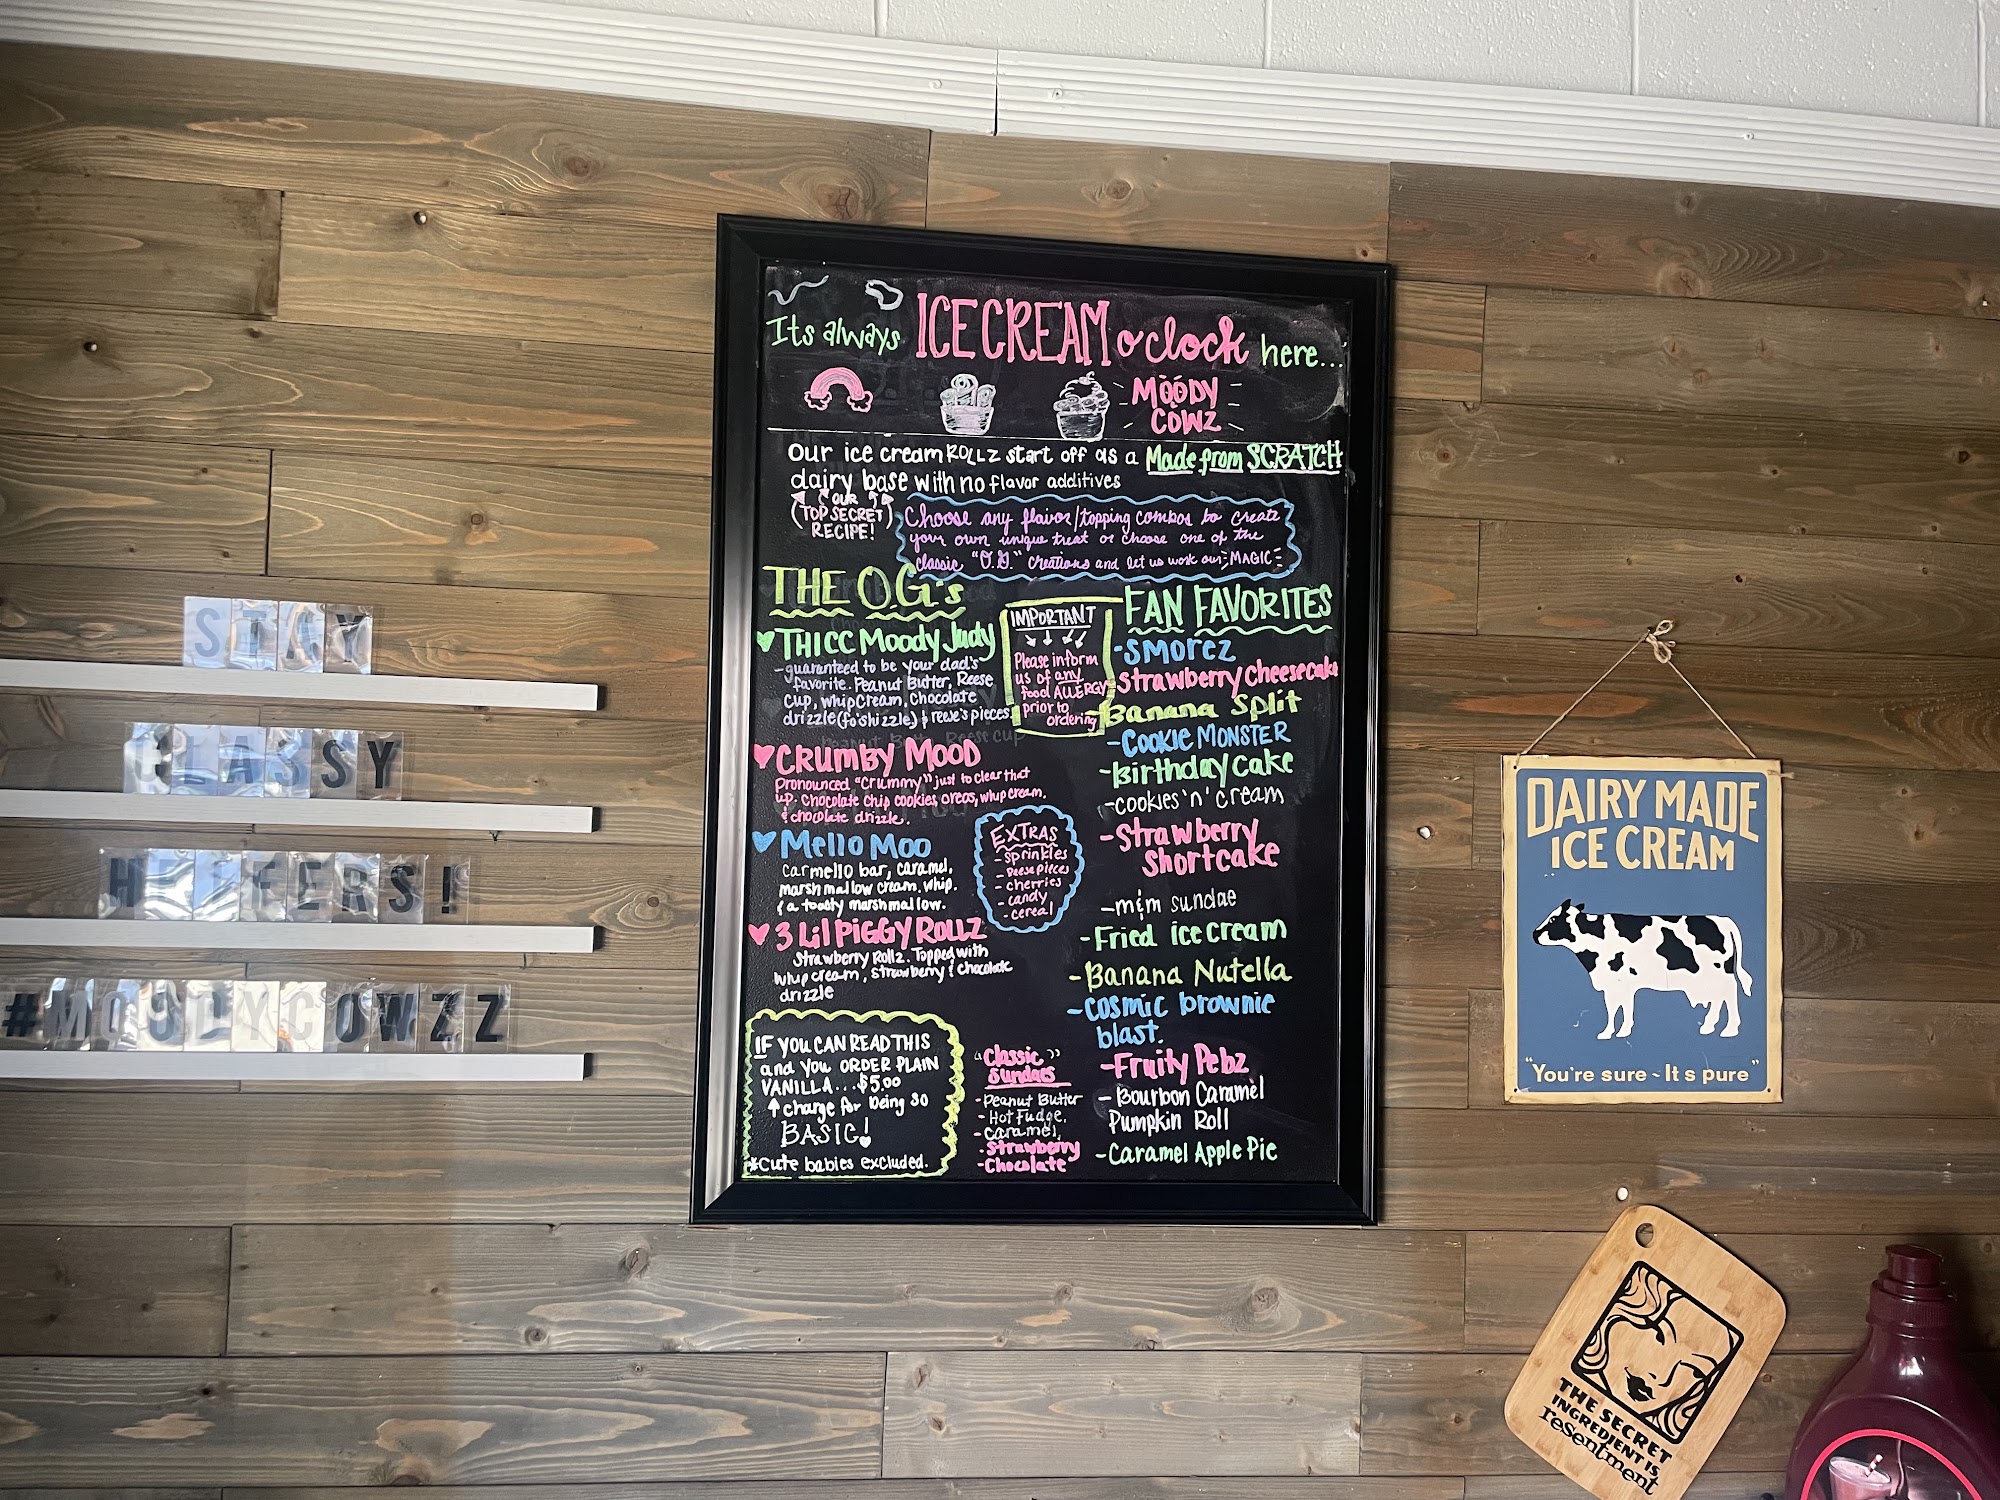 Its always ICE CREAM o'clock here...
MOODY
COWZ
Our ice cream ROLLZ start off as a Made from SCRATCH
dairy base with no flavor additives
OUR
(TOP SECRET)
RECIPE!
Choose any flavor/topping combos to create
your own unique treat or choose one of the
classic "O.G." creations and let us work our MAGIC
THE O.G's
THICC Moody Judy
-guaranteed to be your dad's
favorite. Peanut Butter, Reese
cup, whip cream, Chocolate
drizzle (fo'shizzle) & reese's pieces
CRUMBY MOOD
pronounced "Crummy" just to clear that
up. Chocolate chip cookies, oreos, whip cream,
& chocolate drizzle.
Mello Moo
carmello bar, caramel,
marshmallow cream, whip,
& a toasty marshmallow.
3 Lil PiGGY ROLLZ
Strawberry Rollz. Topped with
whip cream, strawberry & chocolate
drizzle
IF YOU CAN READ THIS
and you ORDER PLAIN
VANILLA...$5.00
charge for being so
BASIC!
*Cute babies excluded.
IMPORTANT
Please inform
us of any
food ALLERGY
prior to
ordering
EXTRAS
- sprinkles
- Reese pieces
- cherries
- candy
- cereal
"Classic"
Sundaes
- Peanut Butter
- Hot Fudge,
- caramel,
- Strawberry
- Chocolate
FAN FAVORITES
-SMOREZ
-Strawberry Cheesecake
-Banana Split
-Cookie MONSTER
-Birthday Cake
-cookies 'n' cream
-Strawberry
Shortcake
-m&m sundae
-Fried ice cream
-Banana Nutella
-cosmic brownie
blast.
-Fruity Pebz
-Bourbon Caramel
Pumpkin Roll
-Caramel Apple Pie
STAY
CLASSY
HEIFERS!
#MOODYCOWZZ
DAIRY MADE
ICE CREAM
"You're sure - It s pure"
THE SECRET
INGREDIENT IS,
resentment